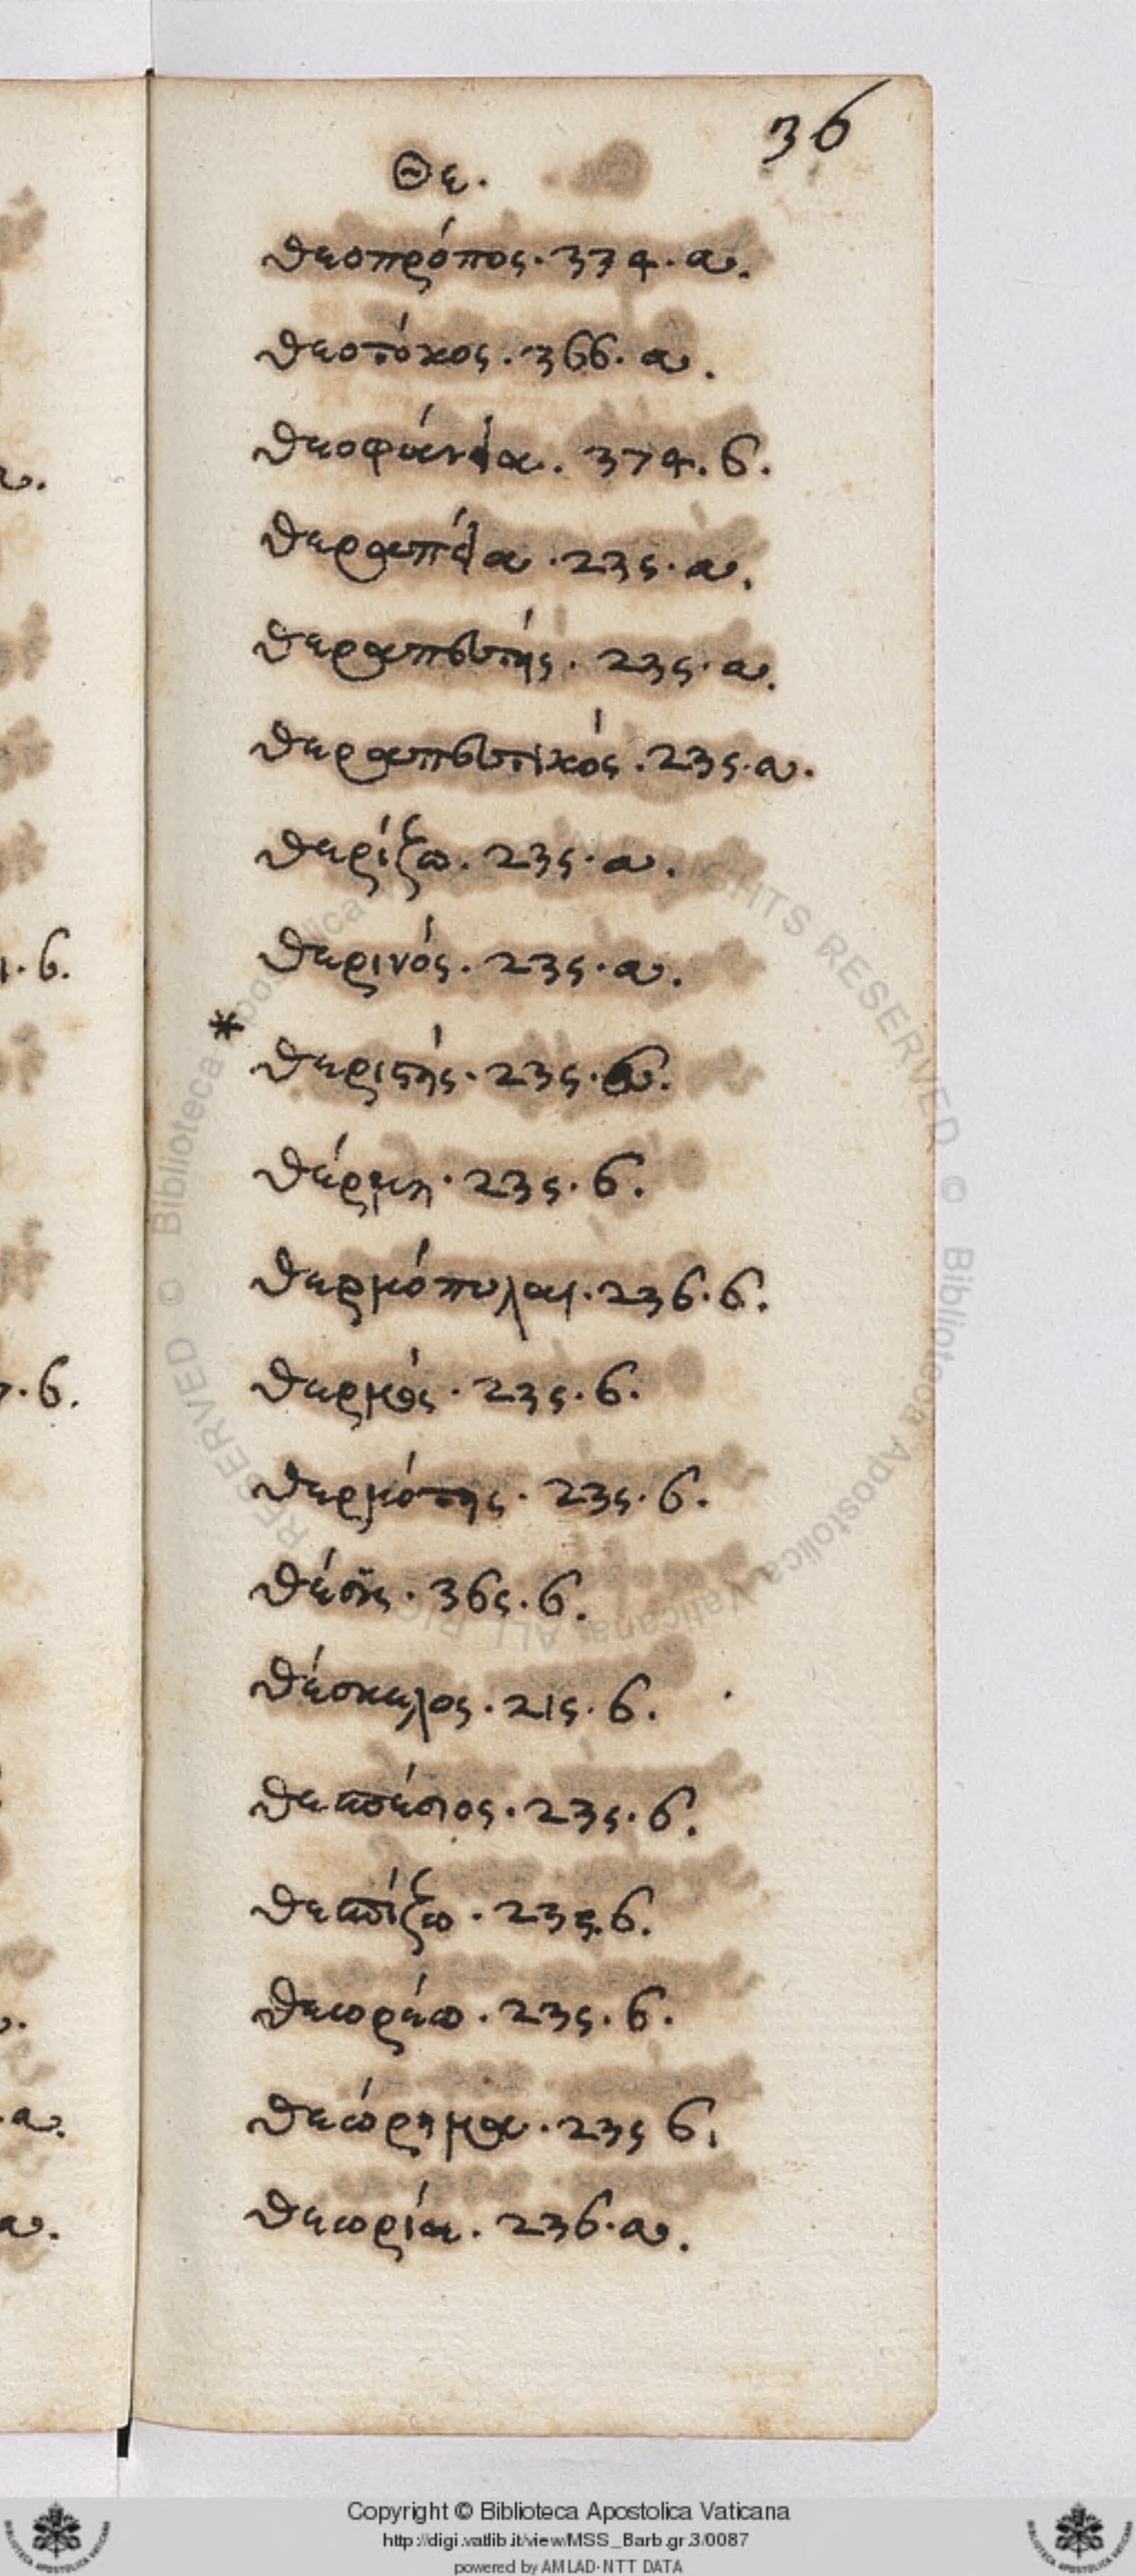 36
Θε.
θεοπρόπος. 334. a.
θεοτόκος. 366. a.
θεοφάνεια. 374. b.
θεραπεία. 235. a.
θεραπευτής. 235. a.
θεραπευτικός. 235. a.
θερίζω. 235. a.
θερινός. 235. a.
* θεριστής. 235. a.
θέρμη. 235. b.
θερμόπυλαι. 236. b.
θερμός. 235. b.
θερμότης. 235. b.
θέσις. 365. b.
θέσκελος. 215. b.
θεσπέσιος. 235. b.
θεσπίζω. 235. b.
θεωρέω. 235. b.
θεώρημα. 235 b.
θεωρία. 236. a.
Copyright © Biblioteca Apostolica Vaticana
http://digi.vatlib.it/view/MSS_Barb.gr.3/0087
powered by AMLAD-NTT DATA